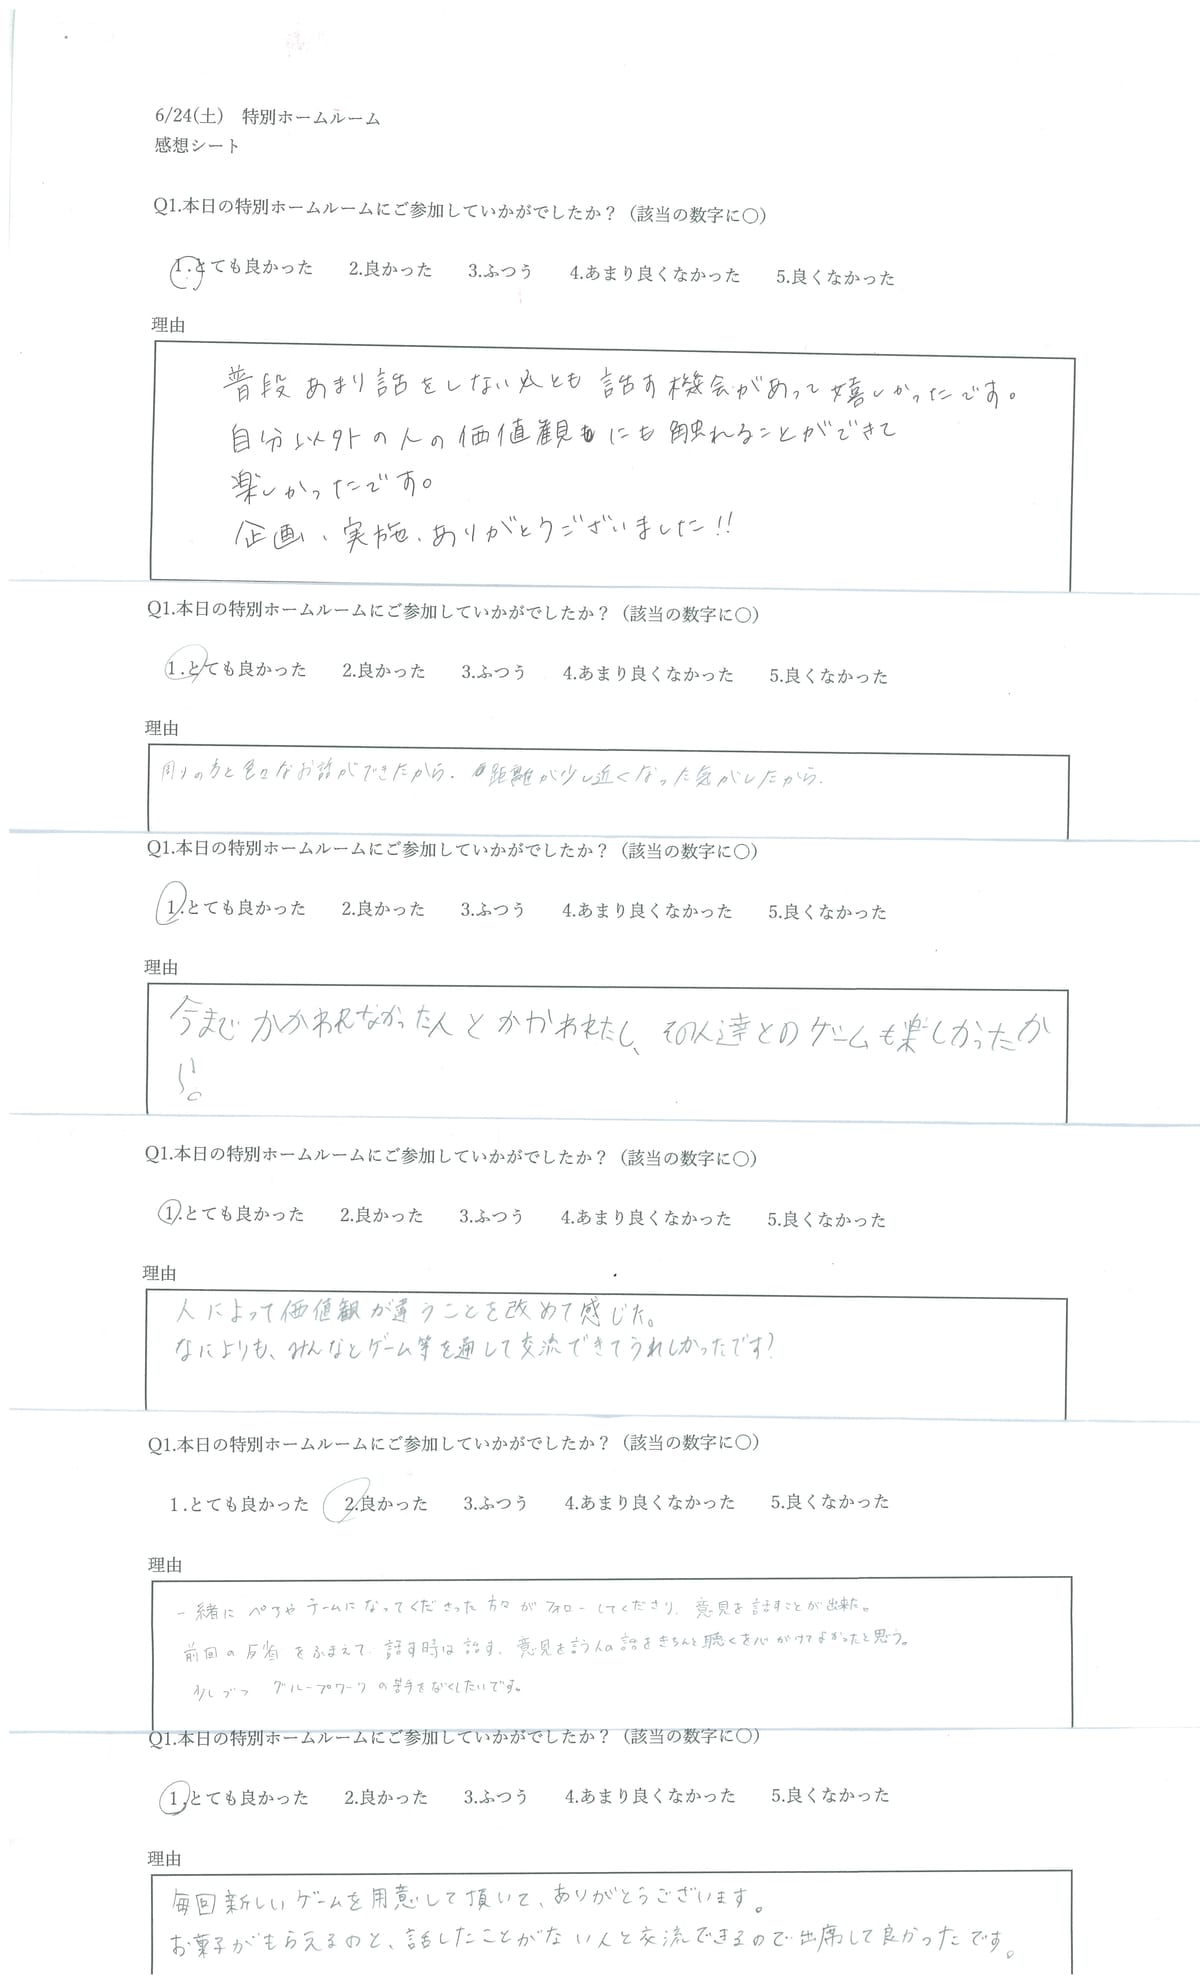 6/24(土)　特別ホームルーム
感想シート
Q1.本日の特別ホームルームにご参加していかがでしたか？（該当の数字に○）
1.とても良かった　2.良かった　3.ふつう　4.あまり良くなかった　5.良くなかった
理由
普段あまり話をしない人とも話す機会があって嬉しかったです。
自分以外の人の価値観にも触れることができて
楽しかったです。
企画、実施、ありがとうございました!!
Q1.本日の特別ホームルームにご参加していかがでしたか？（該当の数字に○）
1.とても良かった　2.良かった　3.ふつう　4.あまり良くなかった　5.良くなかった
理由
周りの方と色々なお話ができたから。距離が少し近くなった気がしたから。
Q1.本日の特別ホームルームにご参加していかがでしたか？（該当の数字に○）
1.とても良かった　2.良かった　3.ふつう　4.あまり良くなかった　5.良くなかった
理由
今までかかわれなかった人とかかわれたし、その人達とのゲームも楽しかったか
ら。
Q1.本日の特別ホームルームにご参加していかがでしたか？（該当の数字に○）
1.とても良かった　2.良かった　3.ふつう　4.あまり良くなかった　5.良くなかった
理由
人によって価値観が違うことを改めて感じた。
なによりも、みんなとゲーム等を通して交流できてうれしかったです!
Q1.本日の特別ホームルームにご参加していかがでしたか？（該当の数字に○）
1.とても良かった　2.良かった　3.ふつう　4.あまり良くなかった　5.良くなかった
理由
一緒にペアやチームになってくださった方々がフォローしてくださり、意見を話すことが出来た。
前回の反省をふまえて、話す時は話す、意見を言う人の話をきちんと聴くを心がけてよかったと思う。
少しづつグループワークの苦手をなくしたいです。
Q1.本日の特別ホームルームにご参加していかがでしたか？（該当の数字に○）
1.とても良かった　2.良かった　3.ふつう　4.あまり良くなかった　5.良くなかった
理由
毎回新しいゲームを用意して頂いて、ありがとうございます。
お菓子がもらえるのと、話したことがない人と交流できるので出席して良かったです。